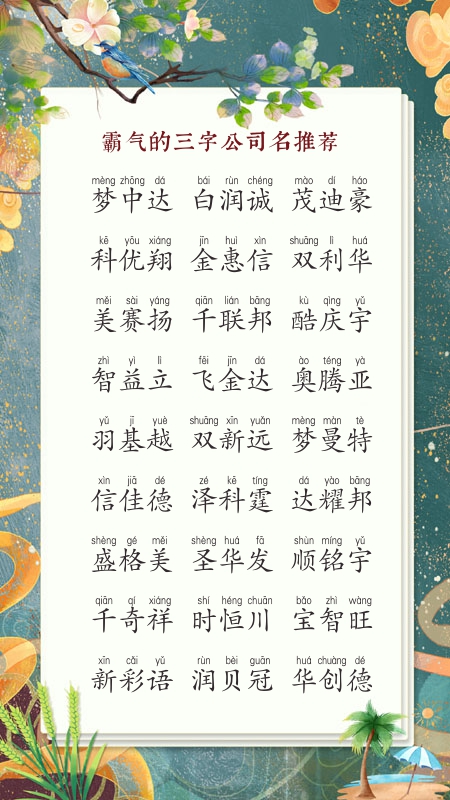 霸气的三字公司名推荐
mèng zhōng dá bái rùn chéng mào dí háo
梦中达 白润诚 茂迪豪
kē yōu xiáng jīn huì xìn shuāng lì huá
科优翔 金惠信 双利华
měi sài yáng qiān lián bāng kù qìng yǔ
美赛扬 千联邦 酷庆宇
zhì yì lì fēi jīn dá ào téng yà
智益立 飞金达 奥腾亚
yǔ jī yuè shuāng xīn yuǎn mèng màn tè
羽基越 双新远 梦曼特
xìn jiā dé zé kē tíng dá yào bāng
信佳德 泽科霆 达耀邦
shèng gé měi shèng huá fā shùn míng yǔ
盛格美 圣华发 顺铭宇
qiān qí xiáng shí héng chuān bǎo zhì wàng
千奇祥 时恒川 宝智旺
xīn cǎi yǔ rùn bèi guān huá chuàng dé
新彩语 润贝冠 华创德